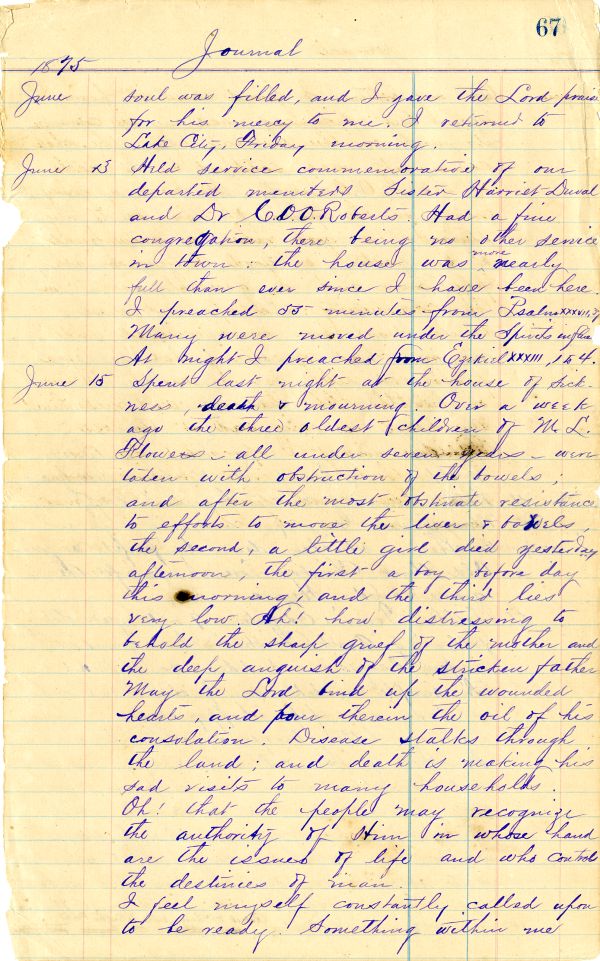 67
Journal
1875
June soul was filled, and I gave the Lord praise
for his mercy to me. I returned to
Lake City, Friday morning.
June 13 Held service commemorative of our
departed members Sister Harriet Duval
and Dr C. O. O. Roberts. Had a fine
congregation, there being no other service
in town: the house was more nearly
full than ever since I have been here.
I preached 55 minutes from Psalm XXXVII,
Many were moved under the Spirit's
At night I preached from Ezekiel XXXIII, 1 to 4.
June 15 Spent last night at the house of sick-
ness, death & mourning. Over a week
ago the three oldest children of M. L.
Flowers - all under seven years - were
taken with obstruction of the bowels;
and after the most obstinate resistance
to efforts to move the liver & bowels,
the second, a little girl died yesterday
afternoon, the first a boy before day
this morning and the third lies
very low. Ah! how distressing to
behold the sharp grief of the mother and
the deep anguish of the stricken father
May the Lord bind up the wounded
hearts, and pour therein the oil of his
consolation. Disease stalks through
the land; and death is making his
sad visits to many households.
Oh! that the people may recognize
the authority of Him in whose hand
are the issues of life and who controls
the destinies of man.
I feel myself constantly called upon
to be ready. Something within me